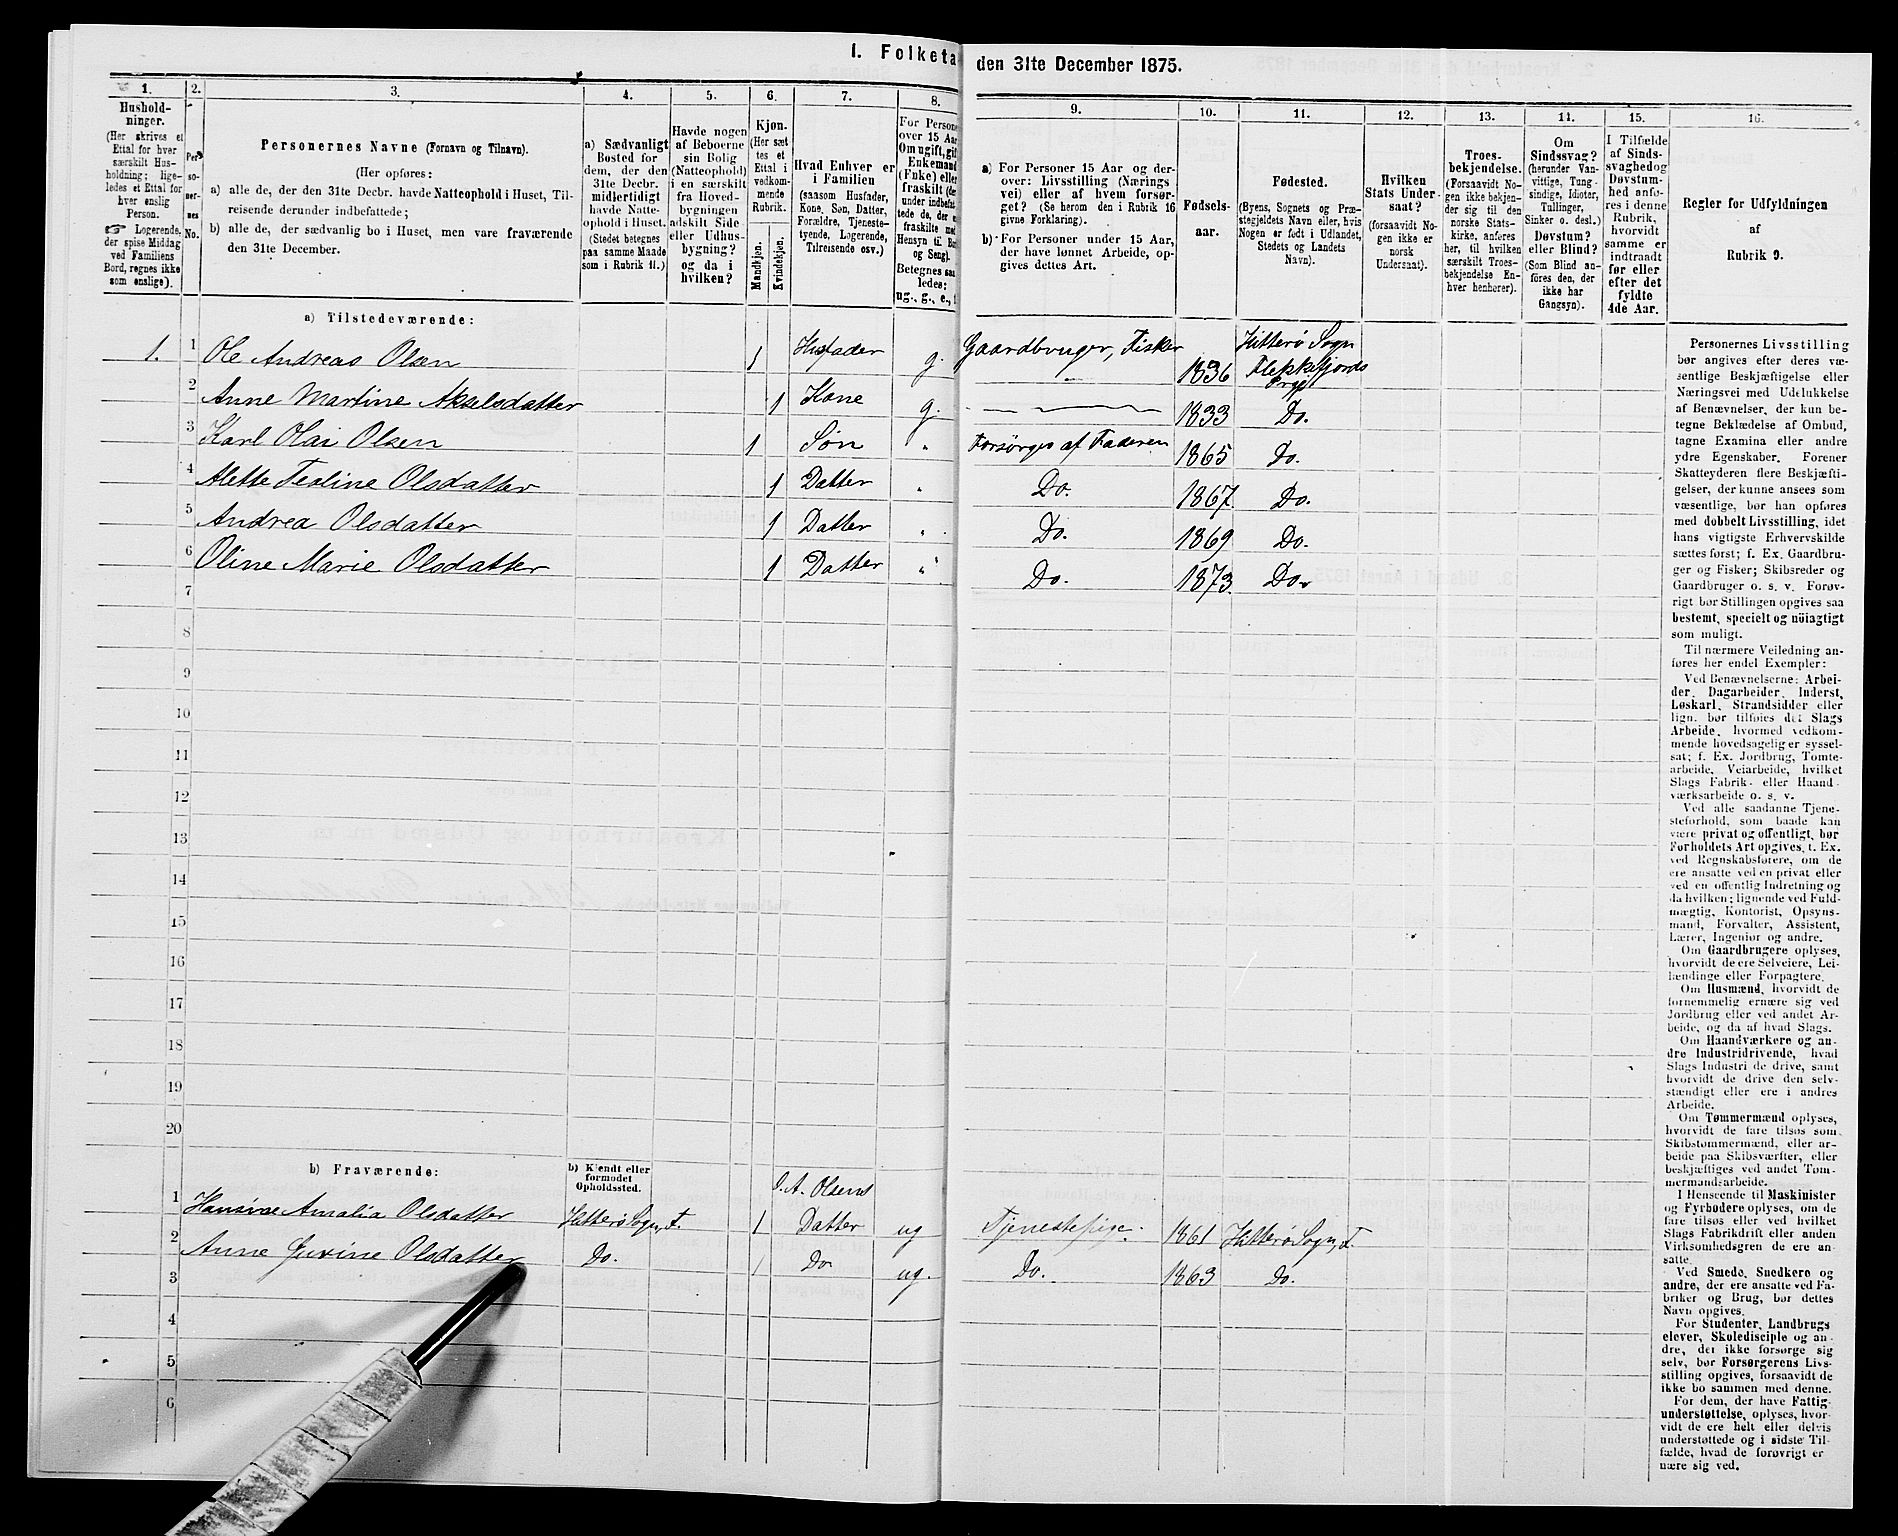 I. Folketa
den 31te December 1875.
1.
Hushold-
ninger.
(Her skrives et
Ettal for hver
særskilt Hus-
holdning; lige-
ledes et Ettal for
hver enslig
Person.
☞ Logerende,
der spise Middag
ved Familiens
Bord, regnes ikke
som enslige).
2.
Per-
so-
ner-
nes
No.
3.
Personernes Navne (Fornavn og Tilnavn).
(Her opføres:
a) alle de, der den 31te Decbr. havde Natteophold i Huset, Til-
reisende derunder indbefattede;
b) alle de, der sædvanlig bo i Huset, men vare fraværende
den 31te December.
4.
a) Sædvanligt
Bosted for
dem, der den
31te Decbr.
midlertidigt
havde Natte-
ophold i Huset.
(Stedet betegnes
paa samme Maade
som i Rubrik 11.)
5.
Havde nogen
af Beboerne
sin Bolig
(Natteophold)
i en særskilt
fra Hoved-
bygningen
adskilt Side-
eller Udhus-
bygning?
og da i
hvilken?
6.
Kjøn.
(Her sæt-
tes et
Ettal i
vedkom-
mende
Rubrik.
Mandkjøn.
Kvindekjøn.
7.
Hvad Enhver er
i Familien
(saasom Husfader,
Kone, Søn, Datter,
Forældre, Tjeneste-
tyende, Logerende,
Tilreisende osv.)
8.
For Persone
over 15 Aar
Om ugift, gift
Enkemand
(Enke) elle
fraskilt (der
under indbefat
tede de, der e
fraskilte med
Hensyn til Bo
og Seng).
Betegnes saa
ledes:
ug., g., e., f
9.
a) For Personer 15 Aar og der-
over: Livsstilling (Nærings
vei) eller af hvem forsør-
get? (Se herom den i Rubrik 16
givne Forklaring).
b) For Personer under 15 Aar,
der have lønnet Arbeide, op-
gives dettes Art.
10.
Fødsels-
aar.
11.
Fødested.
(Byens, Sognets og Præ-
stegjeldets Navn eller, hvis
Nogen er født i Udlandet,
Stedets og Landets
Navn).
12.
Hvilken
Stats Under-
saat?
(forsaavidt No-
gen ikke er
norsk
Undersaat).
13.
Troes-
bekjendelse.
(Forsaavidt No-
gen ikke bekjen-
der sig til den
norske Stats-
kirke, anføres
her, til hvilken
særskilt Troes-
bekjendelse En-
hver henhører).
14.
Om
Sindssvag?
(herunder Van-
vittige, Tung-
sindige, Idioter,
Tullinger,
Sinker o. desl.)
Døvstum?
eller Blind?
(Som Blind an-
føres den, der
ikke har
Gangsyn).
15.
I Tilfælde
af Sinds-
svaghed og
Døvstum-
hed anfø-
res i denne
Rubrik,
hvorvidt
samme er
indtraadt
før eller
efter det
fyldte
4de Aar.
16.
Regler for Udfyldningen
af
Rubrik 9.
a) Tilstedeværende:
1. 1 Ole Andreas Olsen 1 Husfader g. Gaardbruger, Fisker 1836 Hitterø Sogn Flekkefjords Prgj
2 Anne Martine Akselsdatter 1 Kone g. 1833 Do.
3 Karl Olai Olsen 1 Søn " Forsørges af Faderen 1865 Do.
4 Alette Teoline Olsdatter 1 Datter " Do. 1867. Do.
5 Andrea Olsdatter 1 Datter " Do. 1869 Do.
6 Oline Marie Olsdatter 1 Datter " Do. 1873. Do.
7
8
9
10
11
12
13
14
15
16
17
18
19
20
b) Fraværende:
b) Kjendt eller
formodet
Opholdssted.
O. A. Olsens
1 Amalia Olsdatter Hitterø Sogn, F. 1 Datter ug Tjenestepige. 1861 Hitterø Sogn, F.
2 Anne Olsdatter Do. 1 Do. ug. Do. 1863 Do.
3
4
5
6
Personernes Livsstilling
bør angives efter deres væ-
sentlige Beskjæftigelse eller
Næringsvei med Udelukkelse
af Benævnelser, der kun be-
tegne Beklædelse af Ombud,
tagne Examina eller andre
ydre Egenskaber. Forener
Skatteyderen flere Beskjæfti-
gelser, der kunne ansees som
væsentlige, bør han opføres
med dobbelt Livsstilling, idet
hans vigtigste Erhvervskilde
sættes først; f. Ex. Gaardbru-
ger og Fisker; Skibsreder og
Gaardbruger o. s. v. Forøv-
rigt bør Stillingen opgives saa
bestemt, specielt og nöiagtigt
som muligt.
Til nærmere Veiledning an-
føres her endel Exempler:
Ved Benævnelserne: Arbei-
der, Dagarbeider, Inderst,
Løskarl, Strandsidder eller
lign. bør tilføies det Slags
Arbeide, hvormed vedkom-
mende hovedsagelig er syssel-
sat; f. Ex. Jordbrug, Tomte-
arbeide, Veiarbeide, hvilket
Slags Fabrik- eller Haand-
værksarbeide o. s. v.
Ved alle saadanne Tjene-
steforhold, som baade kan
være privat og offentligt, bør
Forholdets Art opgives, f. Ex.
ved Regnskabsførere, om de
ere ansatte ved en privat eller
ved en offentlig Indretning og
da hvilken; lignende ved Fuld-
mægtig, Kontorist, Opsyns-
mand, Forvalter, Assistent,
Lærer, Ingeniør og andre.
Om Gaardbrugere oplyses,
hvorvidt de ere Selveiere, Lei-
lændinge eller Forpagtere.
Om Husmænd, hvorvidt de
fornemmelig ernære sig ved
Jordbrug eller ved andet Ar-
beide, og da af hvad Slags.
Om Haandværkere og an-
dre Industridrivende, hvad
Slags Industri de drive, samt
hvorvidt de drive den selv-
stændigt eller ere i andres
Arbeide.
Om Tømmermænd oplyses,
hvorvidt de fare tilsøs som
Skibstømmermænd, eller ar-
beide paa Skibsværfter, eller
beskjæftiges ved andet Tøm-
mermandsarbeide.
I Henseende til Maskinister
og Fyrbødere oplyses, om de
fare tilsøs eller ved hvilket
Slags Fabrikdrift eller anden
Virksomhed de ere an-
satte.
Ved Smede, Snedkere og
andre, der ere ansatte ved Fa-
briker og Brug, bør dettes
Navn opgives.
For Studenter, Landbrugs
elever, Skoledisciple og an-
dre, der ikke forsørge sig
selv, bør Forsørgerens Livs-
stilling opgives, forsaavidt de
ikke bo sammen med denne.
For dem, der have Fattig-
understøttelse, oplyses, hvor-
vidt de ere helt eller delvis
understøttede og i sidste Til-
fælde, hvad de forøvrigt er
nære sig ved.